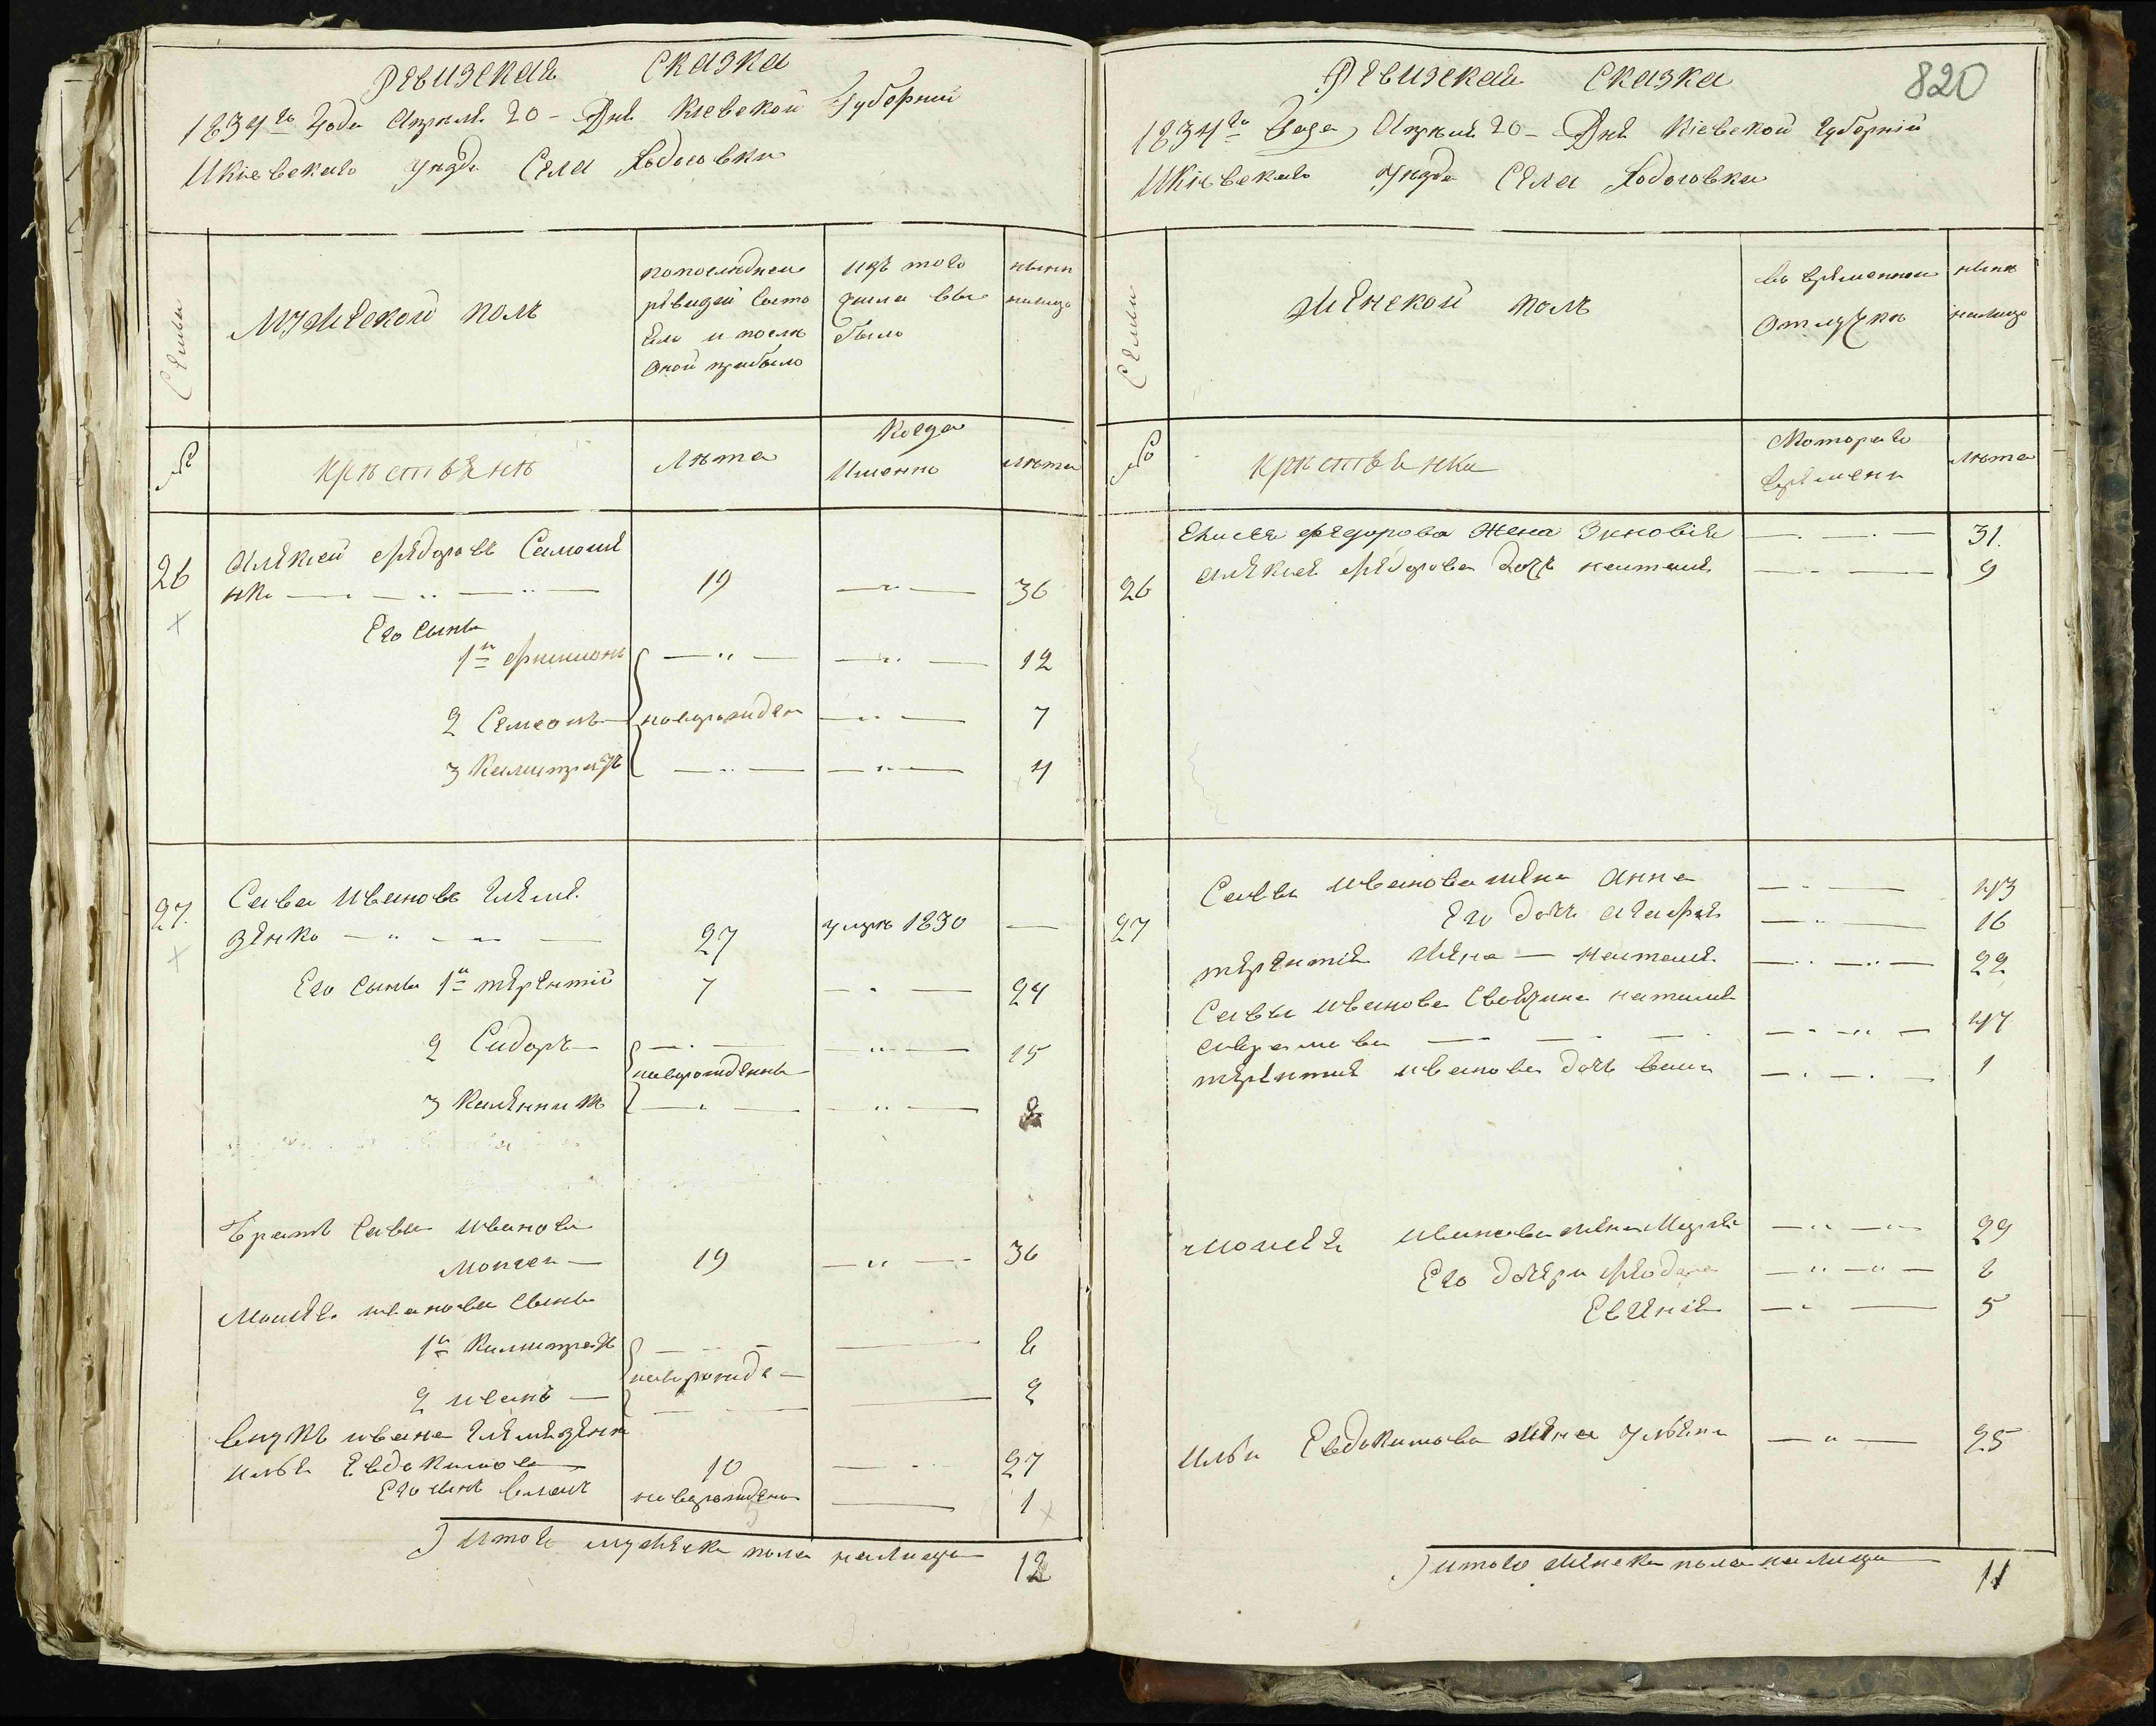 Ревизская Сказка
1834го Года Апреля 20 - Дня Киевской Губернии
Икиевскаго Уезда Села Ходосовки
Семьи
Мужеской полъ
попоследнеи
ревизии состо
яло и после
оной прибыло
изъ того
числа вы
было
ныне
налицо
№
крестьяне
Лета
Когда
Именно
Лета
26
Алексей Федоровъ Самоиле
нко
19
36
Его сыны
1й Филимонъ
12
2 Семеонъ
новорожден
7
3 Калистратъ
4
27.
Сава Ивановъ
зенко
27
умре 1830
Его сыны 1й терентий
7
24
2 Сидоръ
новорожденны
15
3 Каленникъ
Братъ Савы Иванова
Моисеи
19
36
Моисея иванова сыны
1й Калистратъ
новорожде
2 иванъ
2
внукъ ивана
илья Евдокимовъ
10
27
Его сынъ
новорожденъ
1
итого мужеска пола налицо
12
820
Ревизская Сказка
1834го Года Апреля 20 - Дня Киевской Губернии
Икиевскаго Уезда Села Ходосовки
Семьи
Женской полъ
во временной
отлучке
ныне
налицо
№
крестьянки
Которого
времени
лета
26
Алексея Федорова Жена Зиновия
31.
Алексея Федорова дочь наталия
9
27
Савы Иванова жена Анна
43
Его дочь Агафия
16
терентия Жена - наталия
22
Савы Иванова наталия
47
терентия иванова дочь
1
моисея Иванова жена Мария
29
Его дочери Феодора
Евгения
5
Ильи Евдокимова жена Ульяна
25
итого женска пола налицо
11